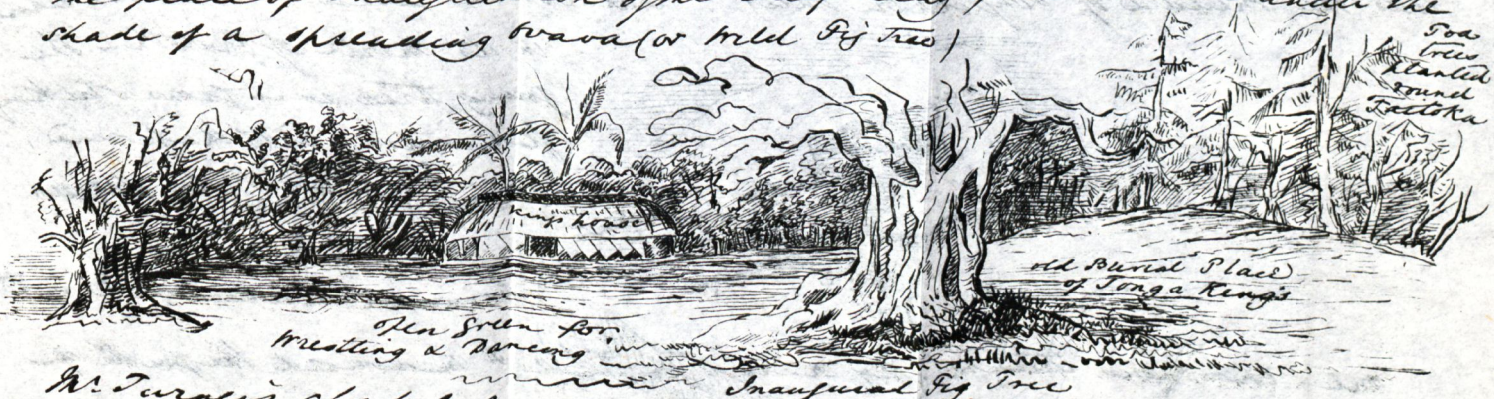 the place of
under the
shade of a spreading Ovava (or Wild Fig Tree)
Toa
trees
planted
round
Faitoka
King's house
old Burial Place
of Tonga King's
Open Green for
Wrestling & Dancing
Inaugural Fig Tree
Mr. Turner's